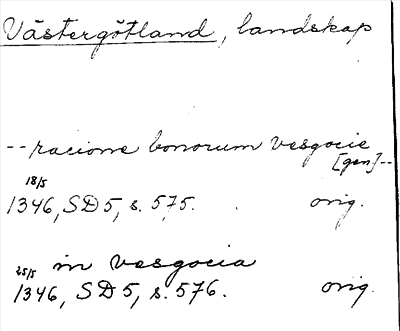 Västergötland, landskap
-- racione bonorum vesgocie
[gen]--
18/5
1346, SD 5, s. 575. orig.
in vesgocia
25/5
1346, SD 5, s. 576. orig.